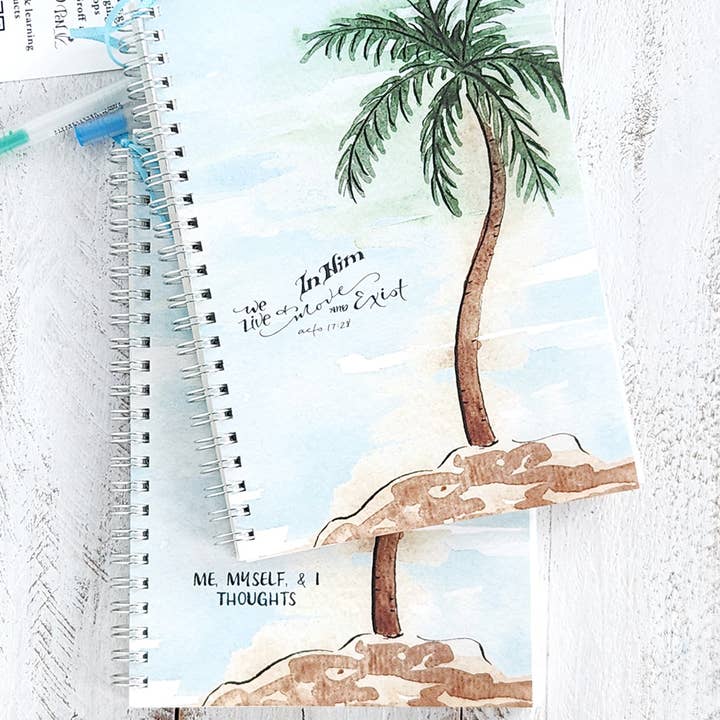 learning
In Him
we
live & move AND Exist
acts 17:28
ME, MYSELF, & I
THOUGHTS